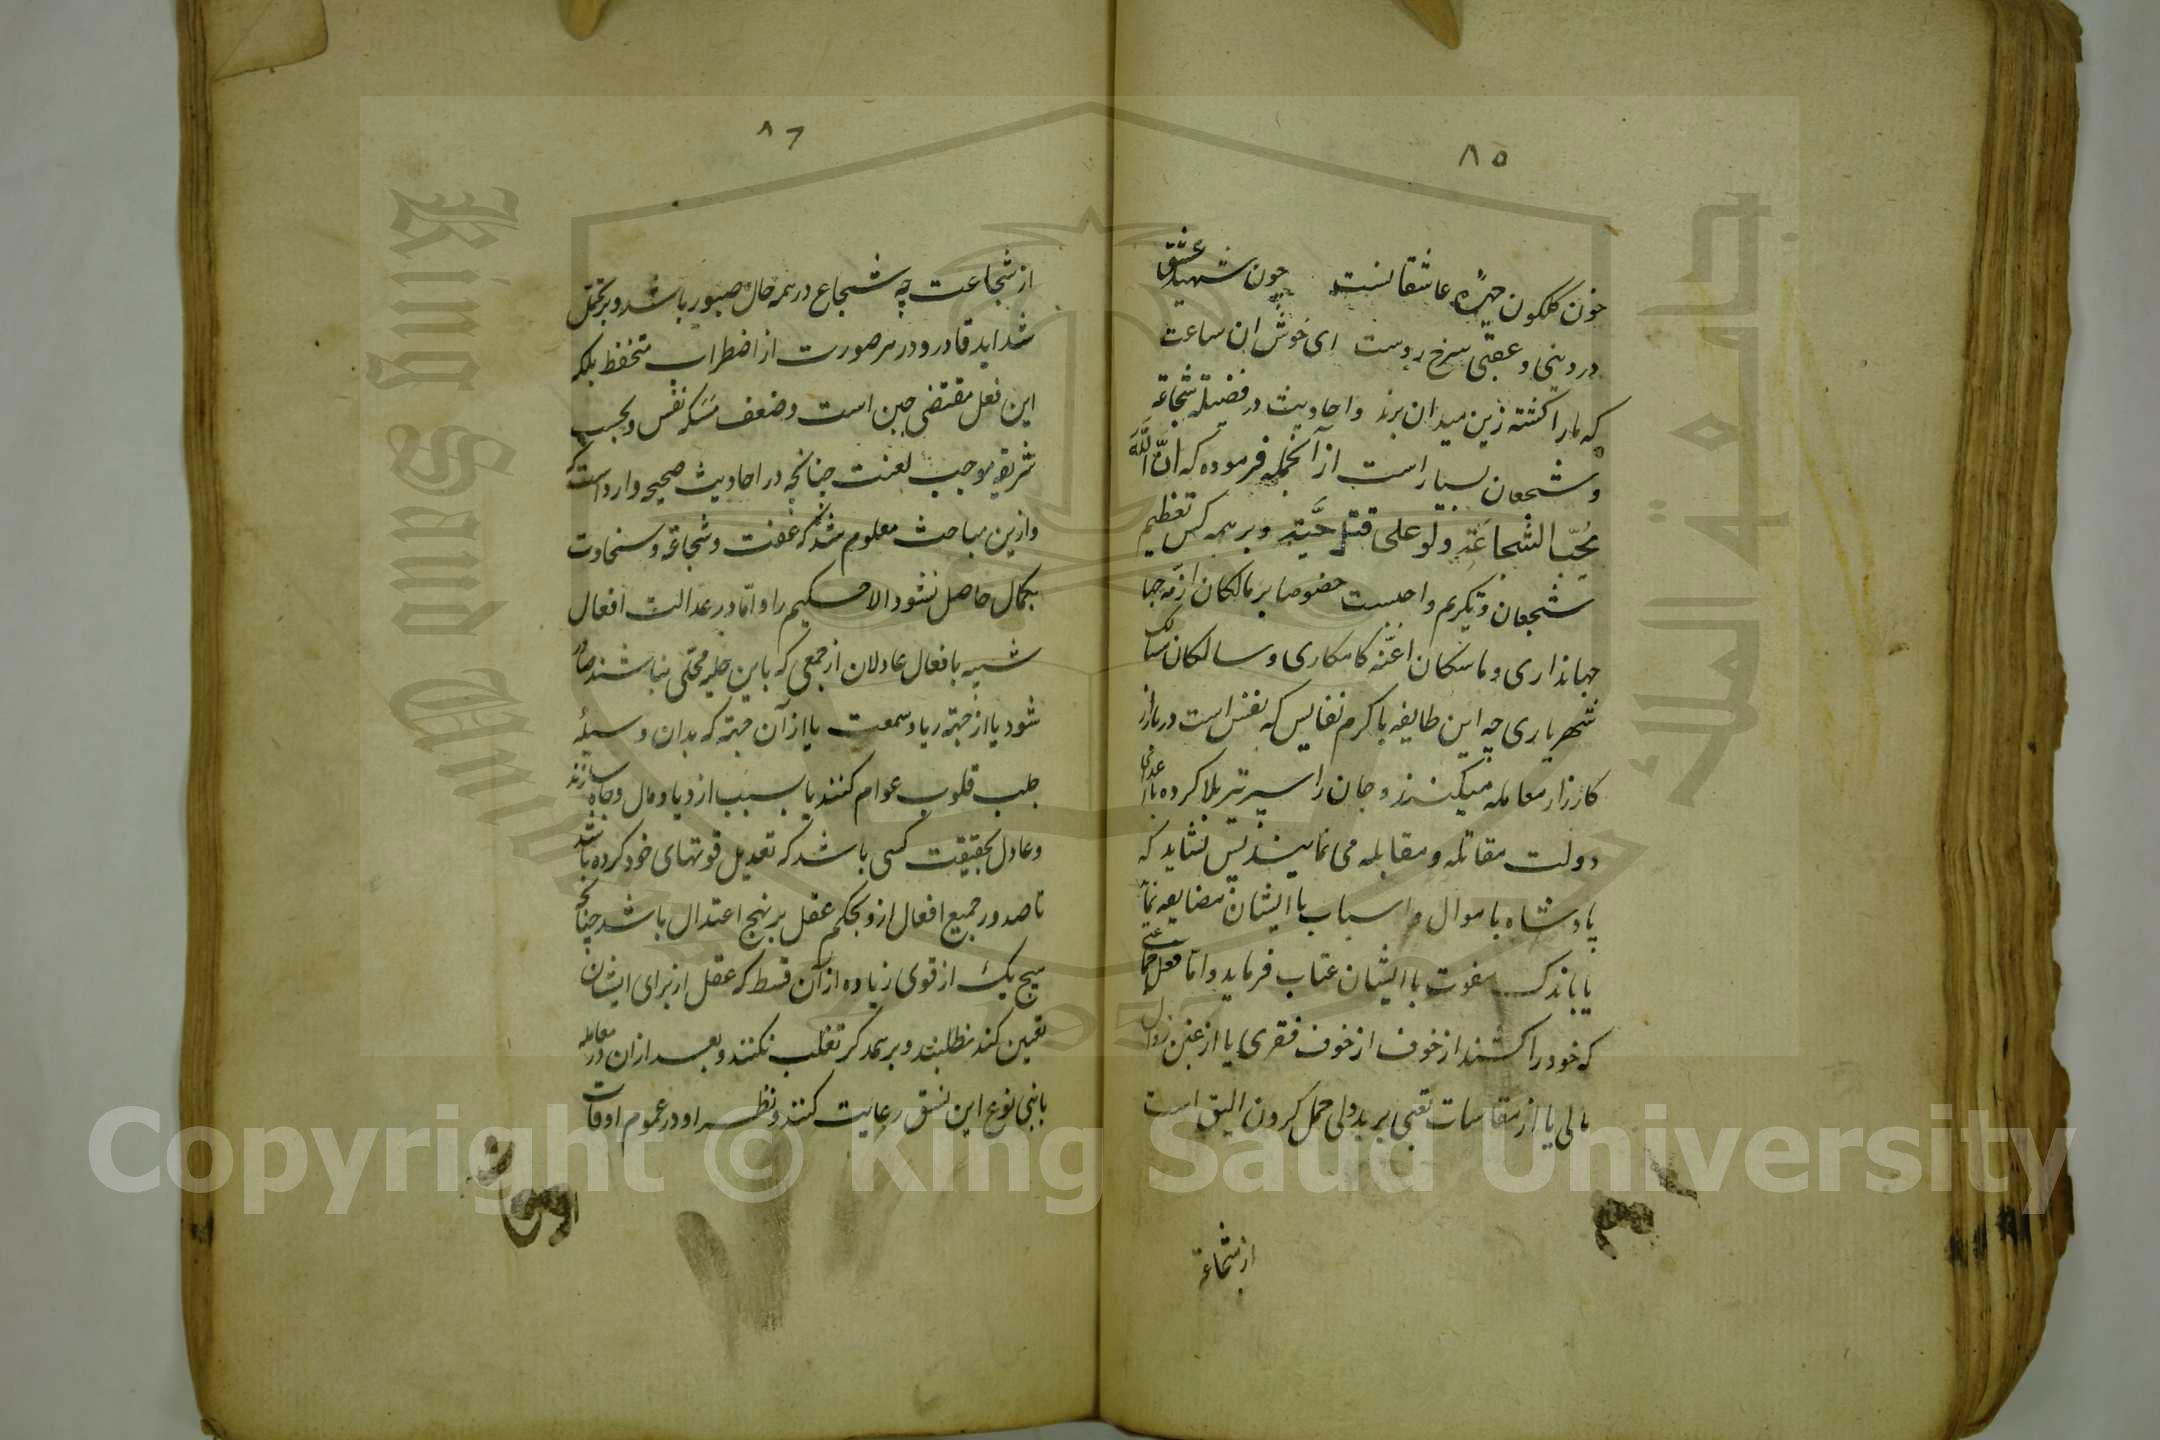 ٨٥
خون گلگون چهرهٔ عاشقانست چون شهید عشق
در دینی و عقبی سرخ روست ای خوش ان ساعت
که مارا کشته زین میدان برند و احادیث در فضیلة شجاعة
و شجعان بسیار است از آنجمله فرموده که انَّ اللّٰهَ
یُحِبّ الشجاعَة ولو علی قتل حَیَّة و بر همه کس تعظیم
شجعان و تکریم واجبست خصوصا بر مالکان ازمه جها
جهانداری و ماسکان اعنّه کامکاری و سالکان مسالک
شهریاری چه این طایفه با کرم نفایس که نفس است در بازار
کارزار معامله میکنند و جان را سپر تیر بلا کرده با اعدای
دولت مقاتله و مقابله می نمایند پس نشاید که
پادشاه باموال و اسباب با ایشان مضایقه نماید
یا باندک هفوت با ایشان عتاب فرماید و اما فعل جماعتی
که خود را کشند از خوف از خوف فقری یا از غبن زوال
مالی یا از مقاسات تعبی بر بددلی حمل کردن الیق است
از شجاعة
٨٦
از شجاعت چه شجاع در همه حال صبور باشد و بر تحمّل
شداید قادر و در هر صورت از اضطراب متحفظ بلکه
این فعل مقتضی جبن است و ضعف مسکه نفس و بحسب
شریعة موجب لعنت چنانچه در احادیث صحیحه وارد است که
و ازین مباحث معلوم شد که عفت و شجاعة و سخاوت
بکمال حاصل نشود الا حکیم را و امّا در عدالت افعال
شبیه بافعال عادلان از جمعی که باین حلیه محلّی نباشند صادر
شود یا از جهة ریا و سمعت یا از آن جهة که بدان وسیلهٔ
جلب قلوب عوام کنند یا بسبب ازدیاد مال و جاه سازند
و عادل بحقیقت کسی باشد که تعدیل قوتهای خود کرده باشد
تا صدور جمیع افعال ازو بحکم عقل بر نهج اعتدال باشد چنانچه
هیچ یک از قوی زیاده از آن قسط که عقل از برای ایشان
تعیین کند نطلبند و بر همدگر تغلب نکنند و بعد ازان در معامله
با بنی نوع این نسق رعایت کنند و نظر او در عموم اوقات
Copyright © King Saud University
King Saud University
جامعة الملك سعود
1957